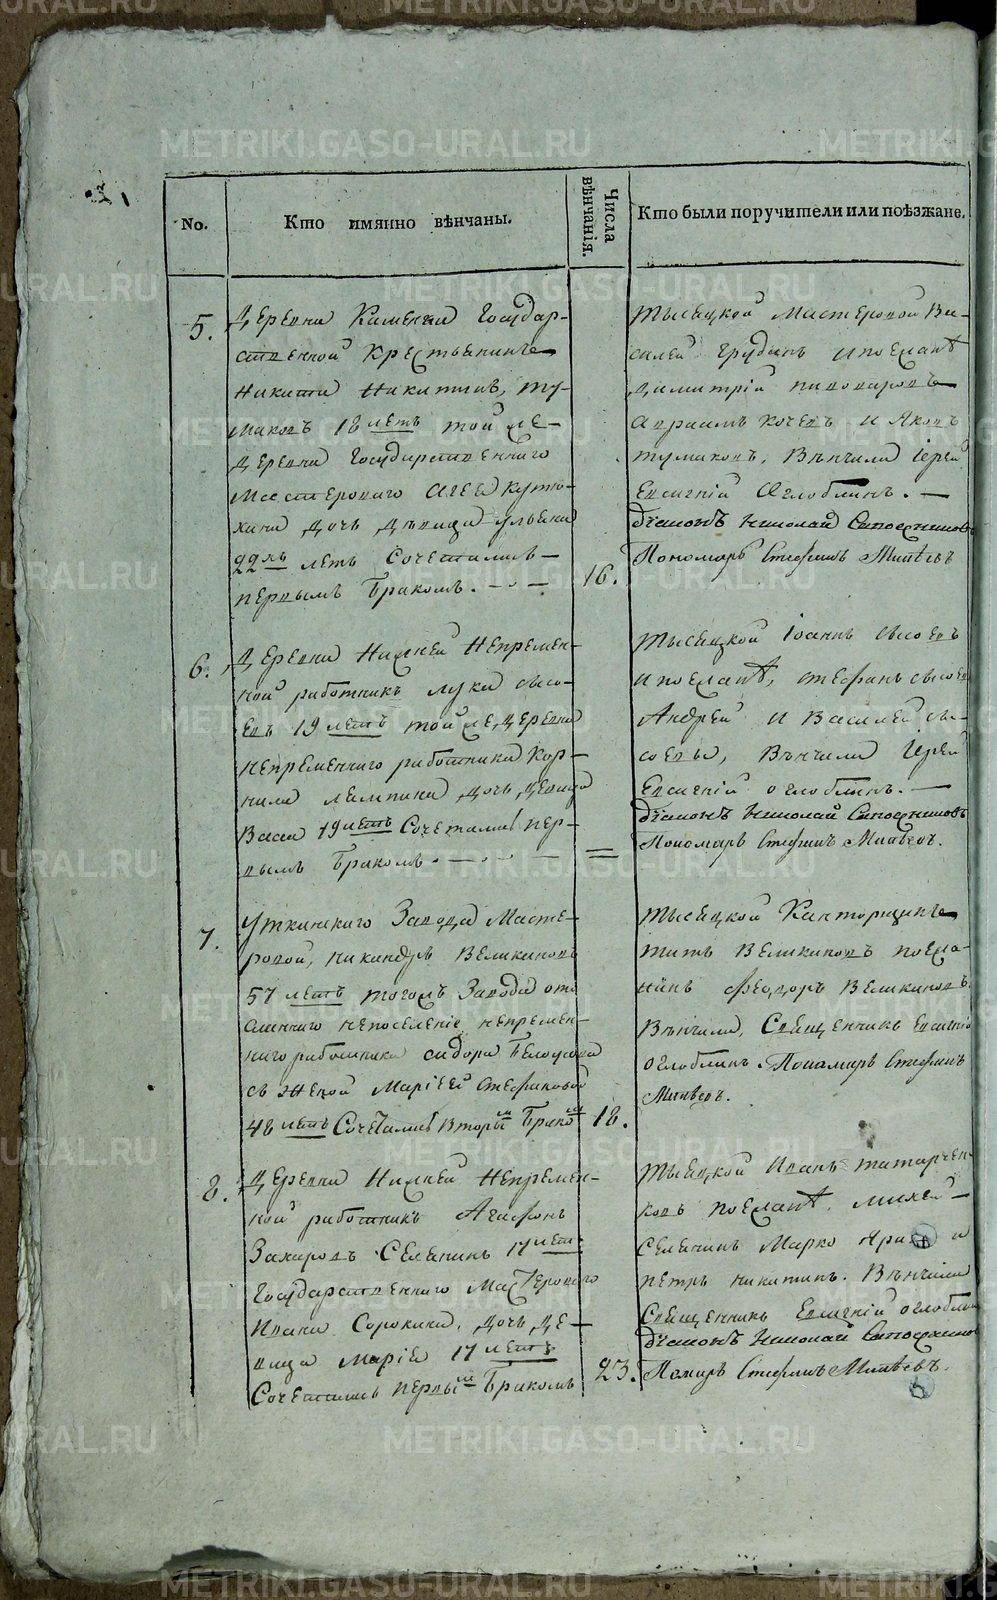 No.
Кто имянно вѣнчаны.
Числа
вѣнчанія.
Кто были поручители или поѣзжане.
5.
Деревни Каменки Государ-
ственной крестьянинъ
Никита Никитинъ, ту-
маковъ 18 летъ той же
деревни Государственнаго
Мастероваго Агея кутю-
хина дочь девица ульяна
22хъ летъ Сочетались
первымъ бракомъ.
16.
тысяцкой Мастеровой Ва-
силей грудинъ и поежанѣ
димитрій пивоваровъ
авраамъ кочевъ и Яковъ
тумаковъ, Вѣнчали Іерей
Евсигній Оглоблинъ.
діаконъ Николай Сапожниковъ
Пономарь Стефанъ Минѣевъ
6.
Деревни Нижней Непремен-
ной работникъ лука сысо-
евъ 19 летъ той же деревни
непременнаго работника Кор-
нила лямпина дочь девица
Васса 19 летъ Сочетались пер-
вымъ бракомъ.
тысяцкой Іоаннъ сысоевъ
и поежанѣ, стефанъ сысоевъ
Андрей и Василей сы-
соевы, Вѣнчали Іерей
Евсигній оглоблинъ.
діаконъ Николай Сапожниковъ
Пономарь Стефанъ Минѣевъ.
7.
Уткинскаго Завода Масте-
ровой, никандръ Великановъ
57 летъ тогожъ Завода от
непременна-
наго работника сидора Белоусова
съ женой Маріей Стефановой
48 летъ Сочетались вторымъ бракомъ
18.
тысяцкой Канторщикъ
титъ Великановъ поежа-
нинъ Феодоръ Великановъ.
Вѣнчали, Священникъ Евсигній
оглоблинъ. Пономарь Стефанъ
Минѣевъ.
8.
Деревни Нижней Непремен-
ной работникъ Агафонъ
Захаровъ Селянинъ 17 летъ
Государственнаго Мастероваго
Ивана Сорокина, дочь де-
вица Марія 17 летъ
Сочетались первымъ бракомъ
23.
тысяцкой Иванъ татарчен-
ковъ поежанѣ, михей
Селянинъ Марко и
петръ никитинъ. Вѣнчали
Священникъ Евсигній оглоблинъ
діаконъ Николай Сапожниковъ
Помарь Стефанъ Минѣевъ.
METRIKI.GASO-URAL.RU